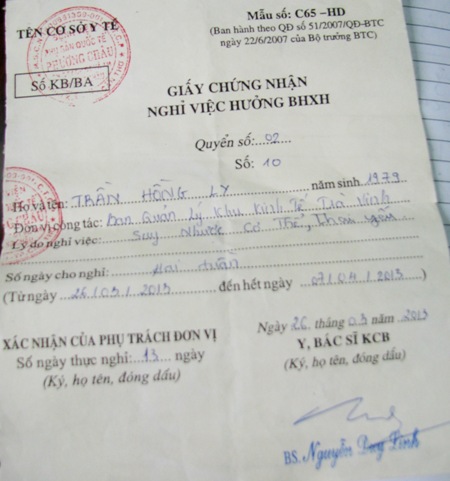 Mẫu số: C65 -HD
TÊN CƠ SỞ Y TẾ
(Ban hành theo QĐ số 51/2007/QĐ-BTC
ngày 22/6/2007 của Bộ trưởng BTC)
QUỐC TẾ
PHƯƠNG CHÂU
Số KB/BA
GIẤY CHỨNG NHẬN
NGHỈ VIỆC HƯỞNG BHXH
Quyển số: 02
Số: 10
Họ và tên: TRẦN HỒNG LY năm sinh 1979
Đơn vị công tác: Ban Quản Lý Khu Kinh Tế Trà Vinh
Lý do nghỉ việc: Suy Nhược Cơ Thể,
Số ngày cho nghỉ: Hai tuần
(Từ ngày 26/03/2013 đến hết ngày 07/04/2013)
Ngày 26 tháng 03 năm 2013
XÁC NHẬN CỦA PHỤ TRÁCH ĐƠN VỊ
Y, BÁC SĨ KCB
Số ngày thực nghỉ: 13 ngày
(Ký, họ tên, đóng dấu)
(Ký, họ tên, đóng dấu)
BS. Nguyễn Duy Linh